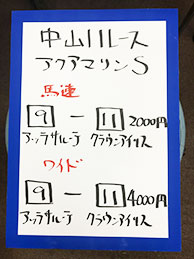 中山11レース
アクアマリンS
馬連
9 － 11 2000円
アッラサルーテ クラウンアイリス
ワイド
9 － 11 4000円
アッラサルーテ クラウンアイリス